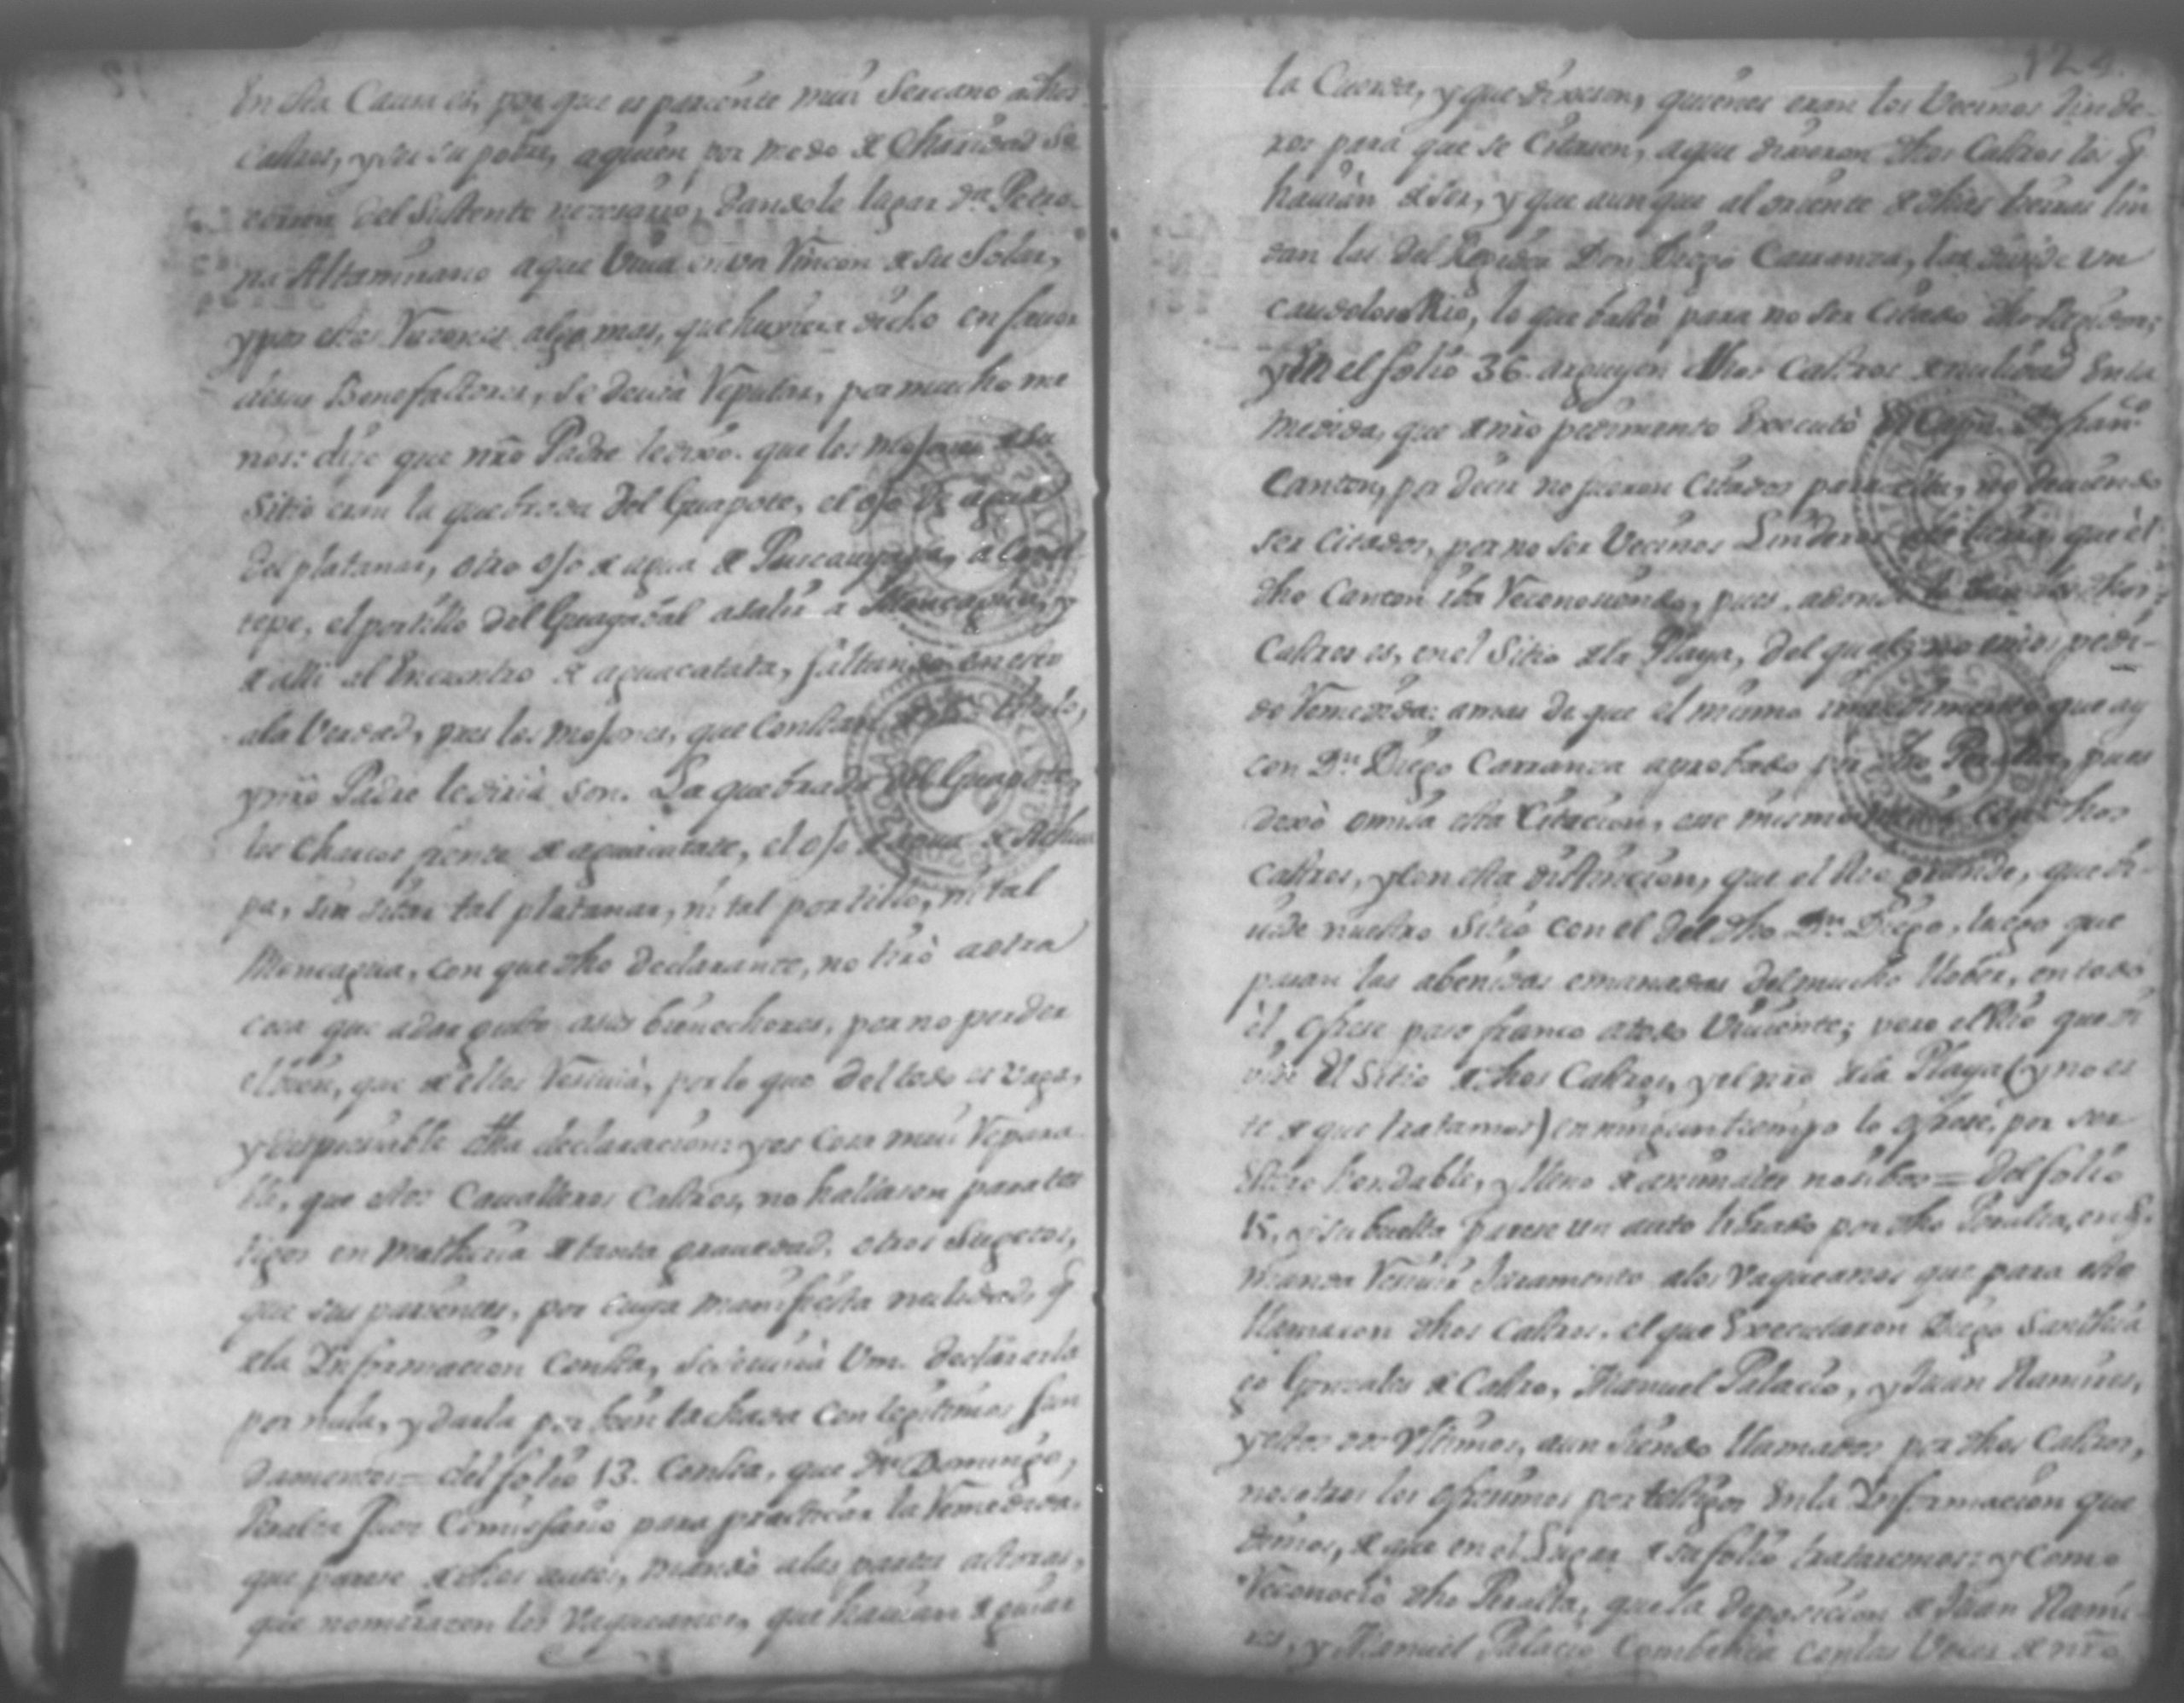 En dha Causa es, por que es pariente muy Sercano a dhos
Castros, y ser su pobre, a quien por modo de Charidad se
del Sustento necesario, dandole lugar Da. Petro-
na Altamirano a que viva en un Rincon de su Solar,
y por estas Razones algo mas, que huviera dicho en favor
de sus Benefactores, se devia Reputar, por mucho me
nos: dize que nro Padre le dixo. que los Mojones de
Sitio eran la quebrada del Guapote, el ojo de agua
del platanar, otro ojo de agua de
tepe, el portillo del Guayabal a salir a Moncagua, y
de alli al Encuentro de aguacatata, faltando en esto
a la Verdad, pues los Mojones, que Constan
y nro Padre le diria son. La quebrada del Guapote,
los Charcos frente de aguacatate, el ojo de agua de
pa, sin sitar tal platanar, ni tal portillo, ni tal
Moncagua, con que dho declarante, no tiró a otra
cosa que a dar gusto a sus bienechores, por no perder
el bien, que de ellos Resivia, por lo que del todo es vaga,
y despresiable dha declaracion: y es cosa muy Repara
ble, que estos Cavalleros Castros, no hallasen para tes
tigos en Matheria de tanta gravedad, otros Sugetos,
que sus parientes, por cuya manifiesta nulidad, q
de la Informacion Consta, se servirá Vm. declararla
por nula, y darla por bien tachada con legitimos fun
damentos = del folio 13. Consta, que Dn Domingo,
Peralta Juez Comissario para practicar la Remedida
que parese de dhos autos, mandó a las partes actoras,
que nombrasen los Vaqueanos, que havian de guiar
la Cuerda, y que dixesen, quienes eran los Vecinos linde-
ros para que se Citasen, a que dixeron dhos Castros los q
havian de ser, y que aun que al oriente de dhas tierras lin
dan las del Regidor Don Diego Carranza, las divide un
caudaloso Rio, lo que bastó para no ser Citado dho Regidor;
y en el folio 36. arguyen dhos Castros de nulidad En la
medida, que de nro pedimento Executó el Capn. Dn Franco
Canton, por decir no fueron Citados para ella, no deviendo
ser citados, por no ser Vecinos Linderos de la tierra, que el
dho Canton iba Reconosiendo, pues, adonde lo son los dhos
Castros es, en el Sitio de la Playa, del qual, no emos pedi-
do Remedida: a mas de que el mismo que ay
con Dn Diego Carranza aprobado por dho Peralta, pues
dexó omisa esta Citacion, ese mismo con dhos
Castros, y con esta distincion, que el Rio grande, que di-
vide nuestro Sitio con el del dho Dn Diego, luego que
pasan las abenidas emanadas del mucho llober, en todo
él, ofrese paso franco a todo Viviente; pero el Rio que di
vide El Sitio de dhos Castros, y el nro de la Playa (y no es
te de que tratamos) en ningun tiempo lo ofrese, por ser
Estero hondable, y lleno de animales nosibos = Del folio
15. y su buelta parese un auto librado por dho Peralta, en q.
manda Resivir Juramento a los Vaqueanos que para esto
llamaron dhos Castros, el que Executaron Diego Santhia
go Gonzales de Castro, Manuel Palacio, y Juan Ramires,
y estos dos Ultimos, aun siendo llamados por dhos Castros,
nosotros los ofresimos por testigos En la Informacion que
dimos, de que en el Lugar de su folio trataremos: y como
Reconoció dho Peralta, que la deposicion de Juan Rami
res, y Manuel Palacio combenia con las Voces de nro